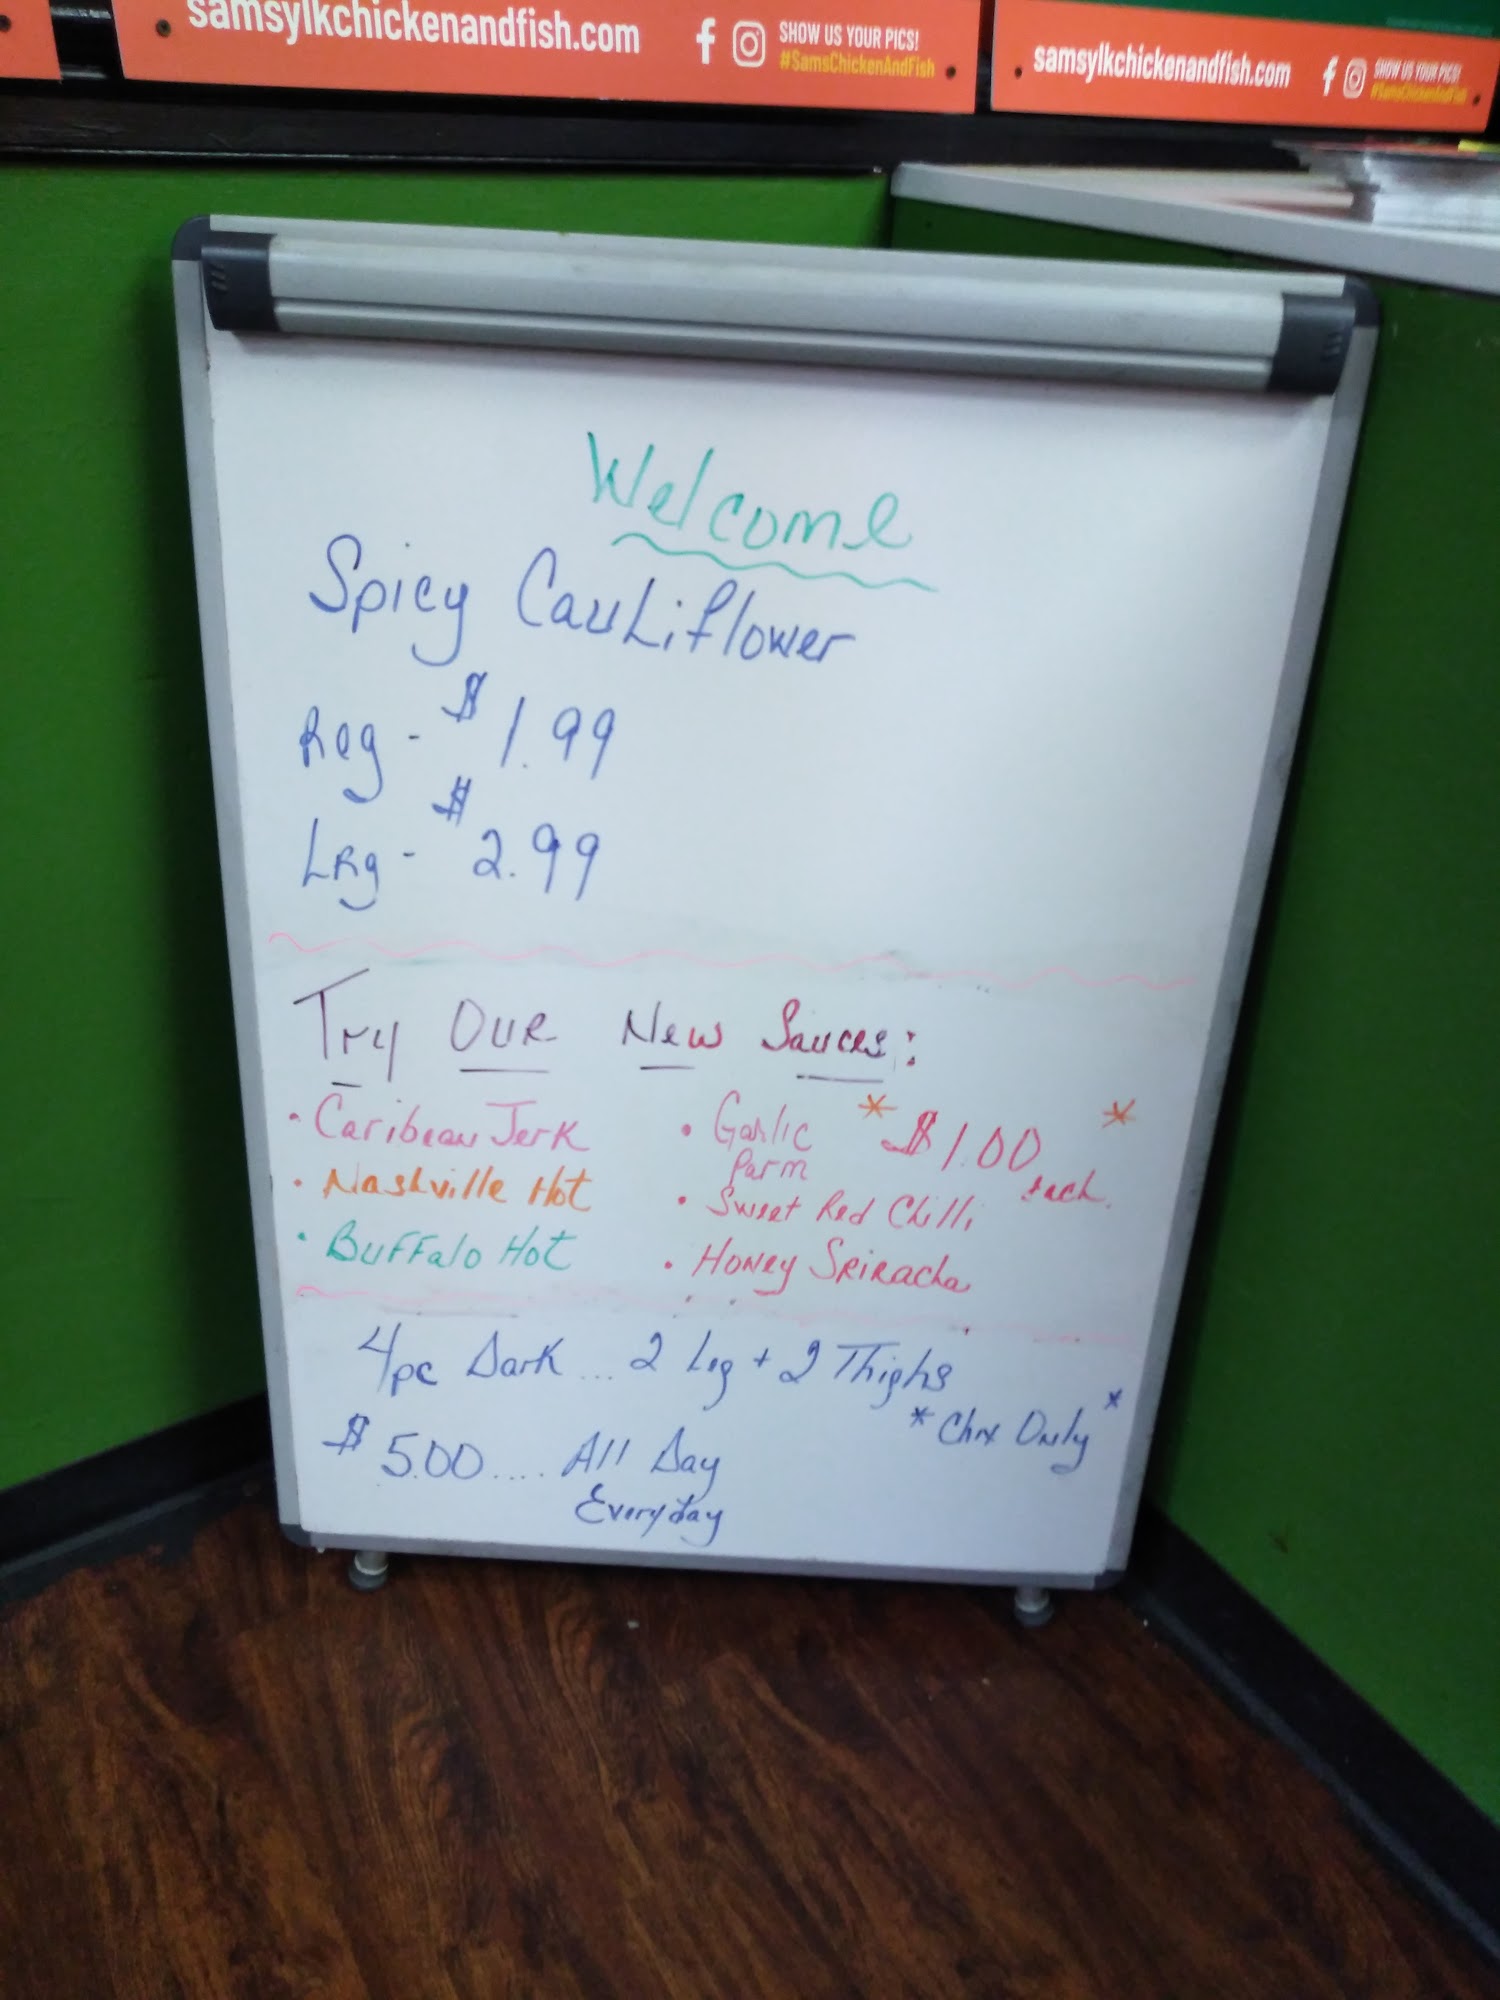 samsylkchickenandfish.com
SHOW US YOUR PICS!
#SamsChickenAndFish
samsylkchickenandfish.com
SHOW US YOUR PICS!
#SamsChickenAndFish
Welcome
Spicy Cauliflower
Reg - $1.99
LRg - $2.99
Try OUR New Sauces:
• Caribean Jerk
• Nashville Hot
• Buffalo Hot
• Garlic
Parm
• Sweet Red Chilli
• Honey Sriracha
* $1.00 *
each.
4pc Dark... 2 Leg + 2 Thighs
* Chx Only *
$5.00.... All Day
Everyday